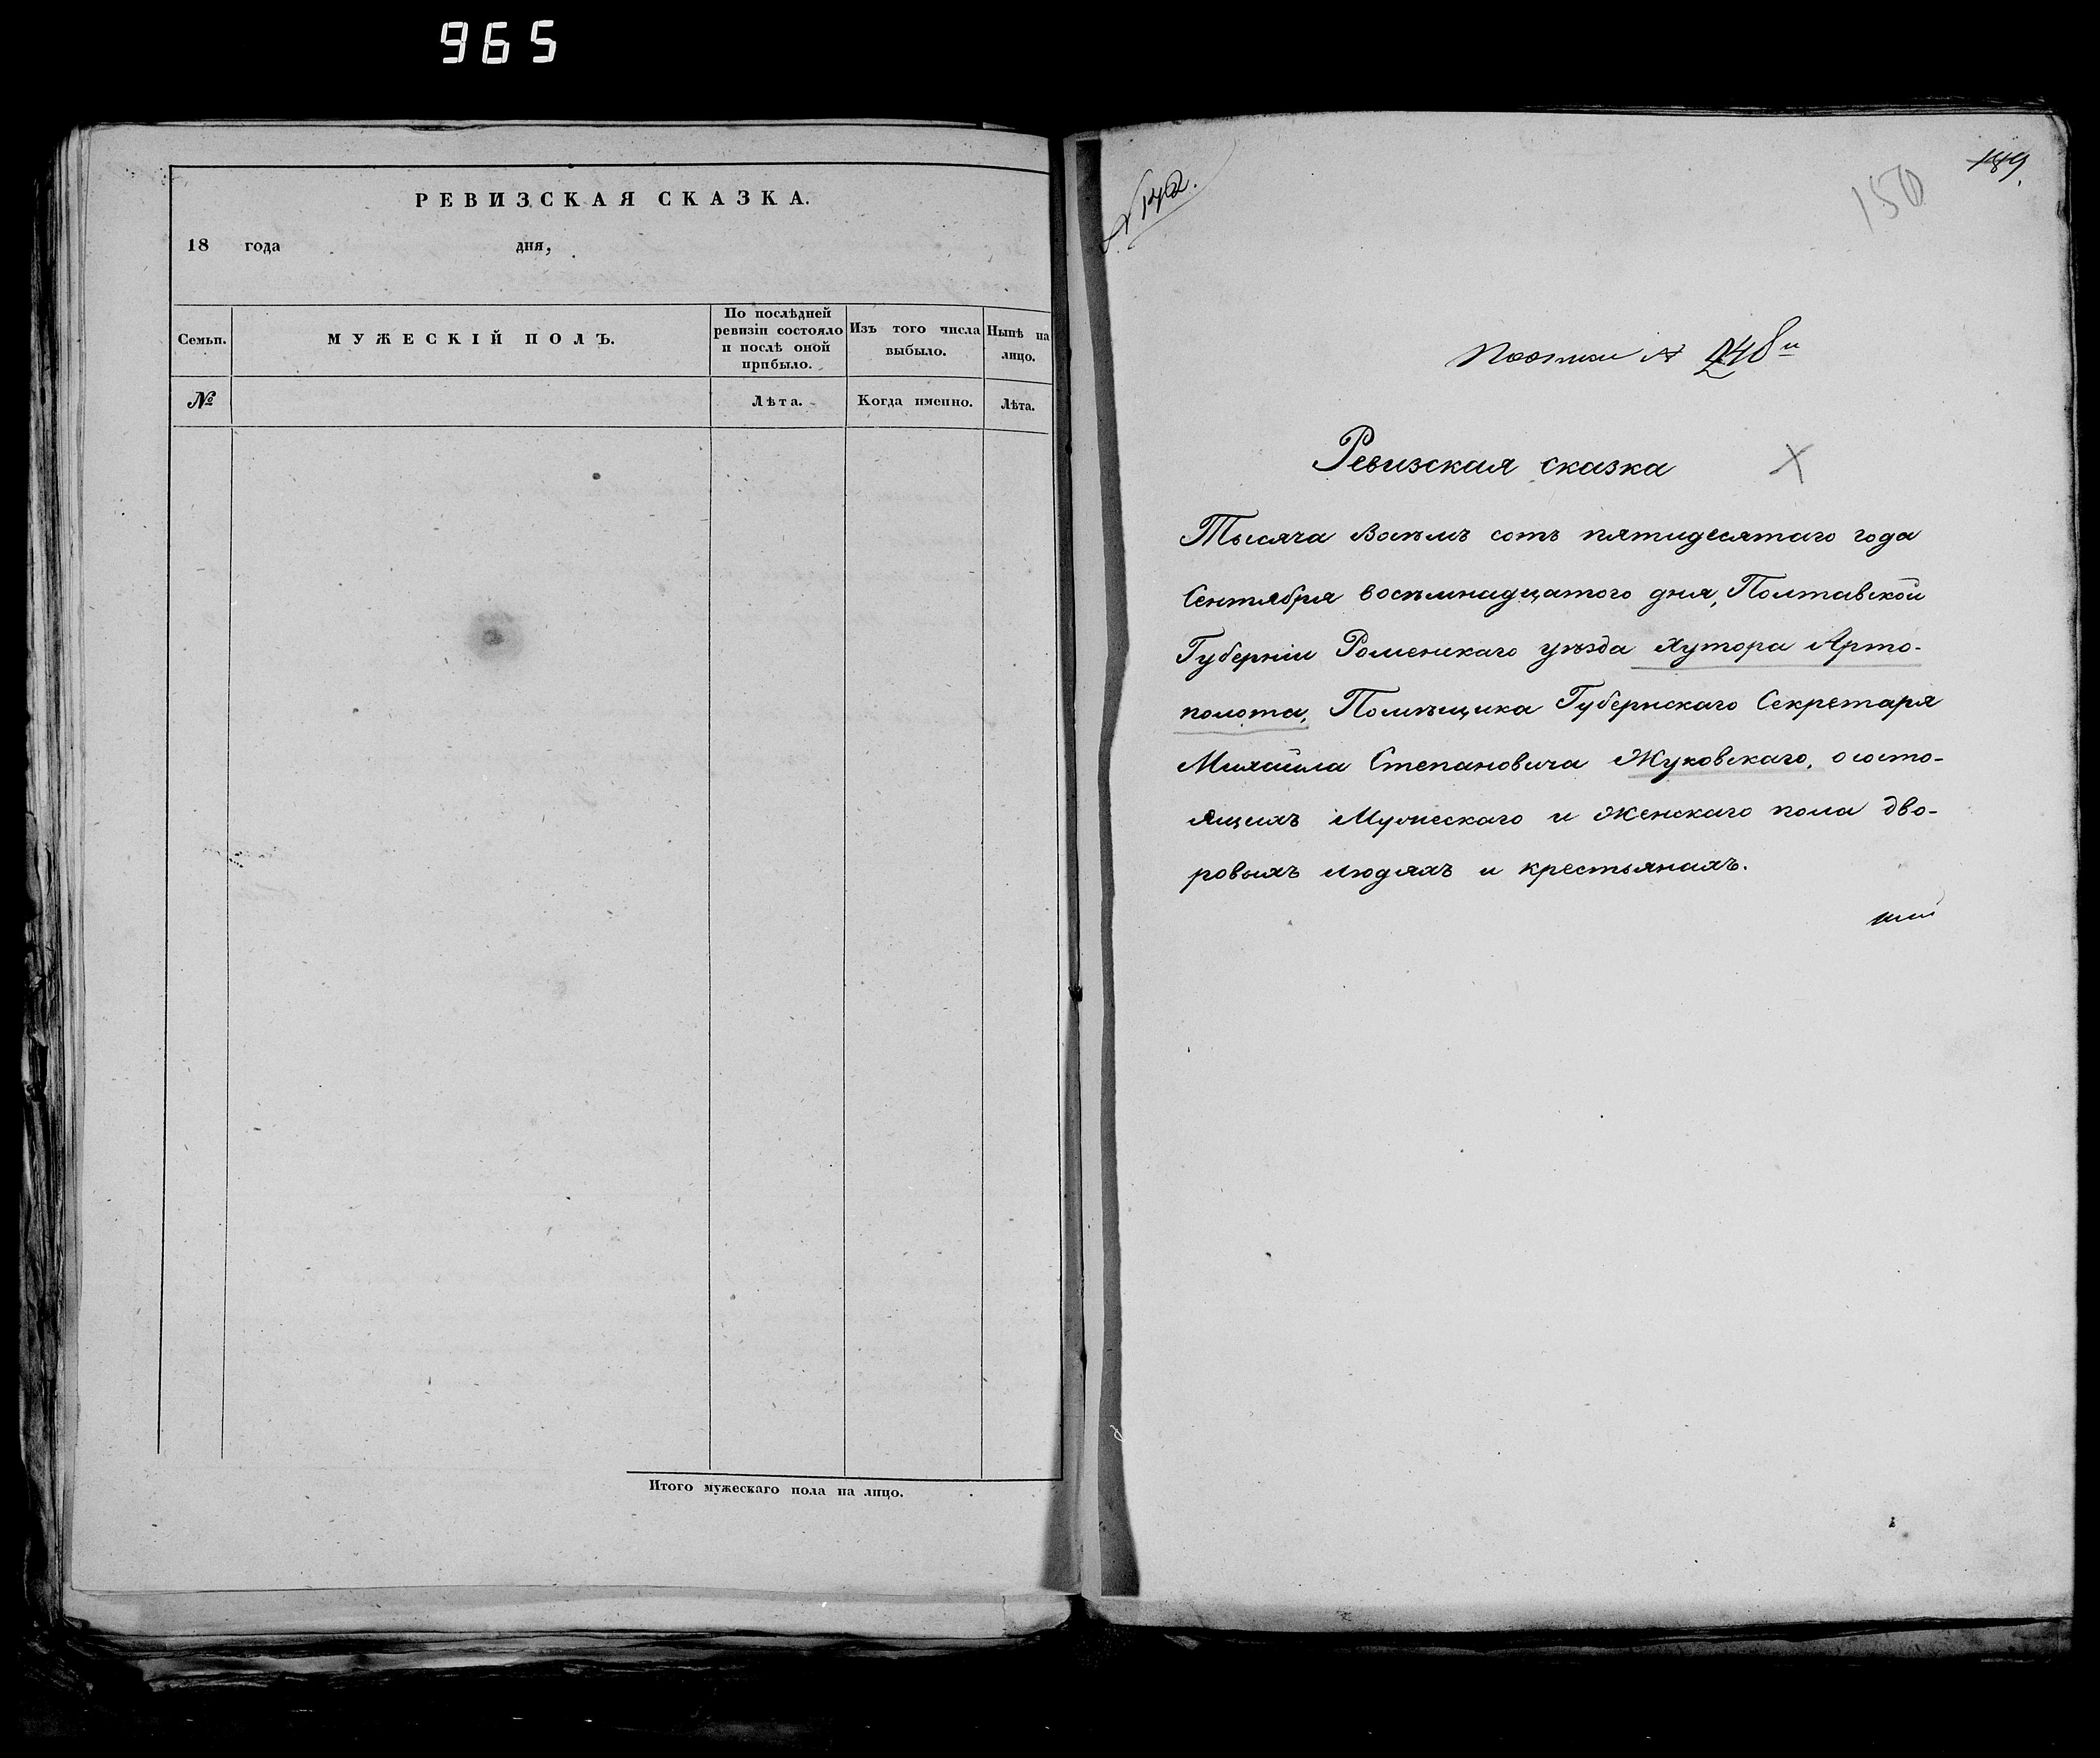 965
РЕВИЗСКАЯ СКАЗКА.
18 года дня,
Семьи.
МУЖЕСКІЙ ПОЛЪ.
По послѣдней
ревизіи состояло
и послѣ оной
прибыло.
Изъ того числа
выбыло.
Нынѣ на
лицо.
№
Лѣта.
Когда именно.
Лѣта.
Итого мужескаго пола на лицо.
№ 142.
150
189.
№ 248
Ревизская сказка
Тысяча Восѣмъ сотъ пятидесятаго года
Сентября восѣмнадцатого дня, Полтавской
Губерніи Роменскаго уѣзда Хутора Арто-
полота, Помѣщика Губернскаго Секретаря
Михайла Степановича Жуковскаго, о состо-
ящихъ Мужескаго и Женскаго пола дво-
ровыхъ людяхъ и крестьянахъ.